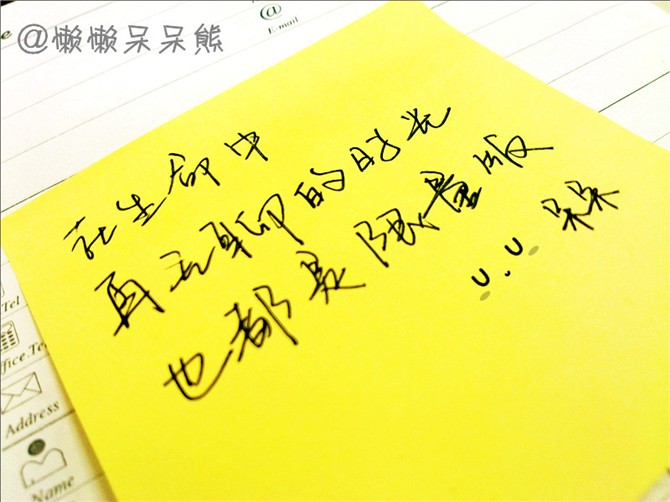 @懒懒呆呆熊
e
@
E-mail
在生命中
再无聊的时光
也都是限量版
呆呆
Tel
ffice.Te
Address
Name